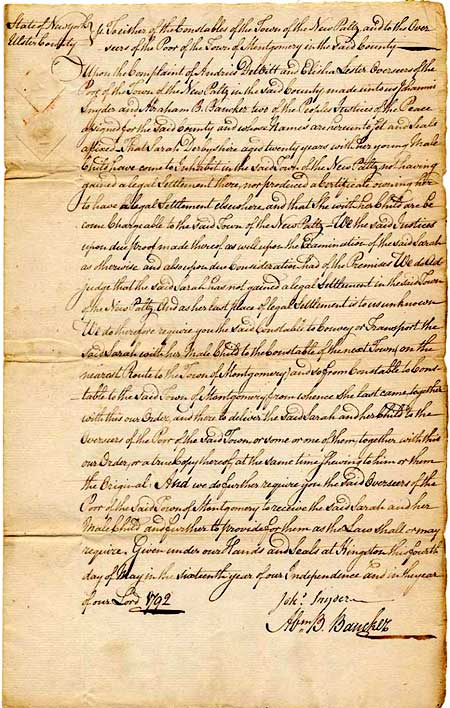 State of New york
Ulster County } To either of the Constables of the Town of the New Paltz, and to the Over
seers of the Poor of the Town of Montgomery in the Said County
Upon the Complaint of Andries DeWitt and Elisha Lester Overseers of the
Poor of the Town of the New Paltz in the Said County made unto us Johannis
Snyder and Abraham B. Bancker two of the Peoples Justices of the Peace
assigned for the Said County and whose Names are hereunto Set and Seals
affixed. That Sarah Derbyshire aged twenty years with her young Male
Child have come to Inhabit in the Said Town of the New Paltz not having
gained a legal Settlement there, nor produced a Certificate owning her
to have a legal Settlement elsewhere, and that She with her Child are be
come Chargeable to the Said Town of the New Paltz – We the said Justices
upon due proof made thereof as well upon the Examination of the said Sarah
as otherwise and also upon due Consideration had of the Premises We do ad
judge that the said Sarah has not gained a legal Settlement in the said Town
of the New Paltz And as her last place of legal Settlement is to us unknown
We do therefore require you the Said Constable to Convey or Transport the
Said Sarah with her Male Child to the Constable of the next Town, on the
nearest Route to the Town of Montgomery, and so from Constable to Cons-
table to the Said Town of Montgomery from whence She last came, together
with this our Order, and there to deliver the Said Sarah and her Child to the
Overseers of the Poor of the Said Town, or some or one of them, together with this
our Order, or a true Copy thereof, at the same time Shewing to him or them
the Original: And we do further require you the said Overseers of the
Poor of the Said Town of Montgomery to receive the Said Sarah and her
Male Child and further to provide for them as the Law shall or may
require. Given under our Hands and Seals at Kingston this fourth
day of May in the sixteenth year of our Independence and in the year
of our Lord 1792
Johs. Snyder
Abm. B. Bancker